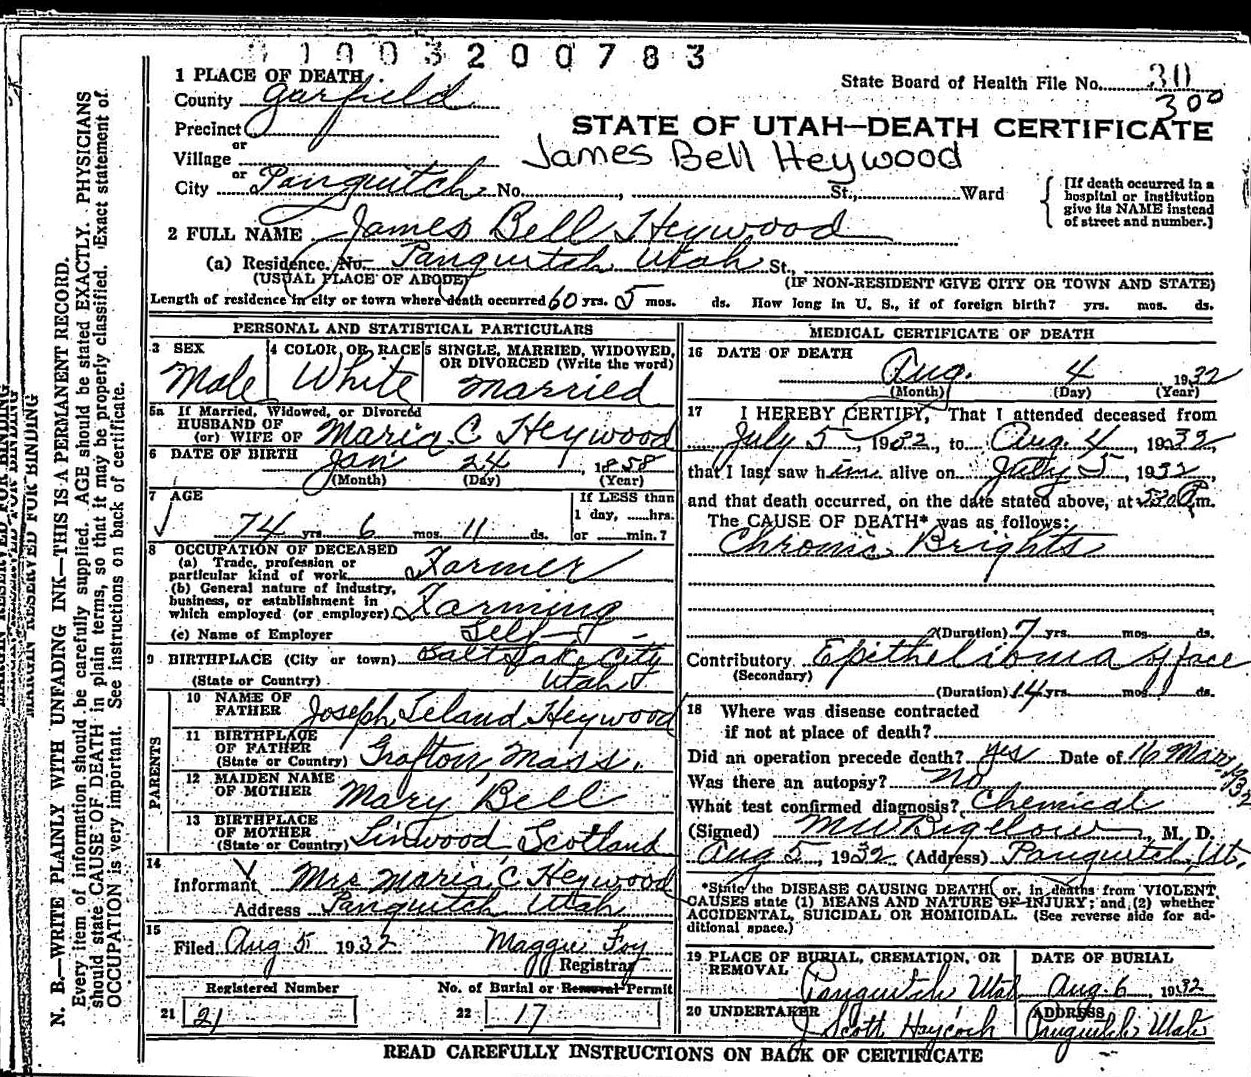 01003200783
1 PLACE OF DEATH
State Board of Health File No. 30
300
County Garfield
Precinct
or
Village
or
City Panguitch No. , St., Ward
STATE OF UTAH—DEATH CERTIFICATE
James Bell Heywood
[If death occurred in a hospital or institution give its NAME instead of street and number.]
2 FULL NAME James Bell Heywood
(a) Residence. No. Panguitch Utah St.,
(USUAL PLACE OF ABODE) (IF NON-RESIDENT GIVE CITY OR TOWN AND STATE)
Length of residence in city or town where death occurred 60 yrs. 5 mos. ds. How long in U. S., if of foreign birth? yrs. mos. ds.
PERSONAL AND STATISTICAL PARTICULARS
3 SEX
Male
4 COLOR OR RACE
White
5 SINGLE, MARRIED, WIDOWED, OR DIVORCED (Write the word)
Married
5a If Married, Widowed, or Divorced
HUSBAND OF
(or) WIFE OF Maria C Heywood
6 DATE OF BIRTH Jan 24, 1858
(Month) (Day) (Year)
7 AGE
74 yrs. 6 mos. 11 ds.
If LESS than
1 day, hrs.
or min.?
8 OCCUPATION OF DECEASED
(a) Trade, profession or
particular kind of work Farmer
(b) General nature of industry,
business, or establishment in
which employed (or employer) Farming
(c) Name of Employer Self
9 BIRTHPLACE (City or town) Salt Lake City
(State or Country) Utah
PARENTS
10 NAME OF
FATHER Joseph Leland Heywood
11 BIRTHPLACE
OF FATHER
(State or Country) Grafton, Mass.
12 MAIDEN NAME
OF MOTHER Mary Bell
13 BIRTHPLACE
OF MOTHER
(State or Country) Linwood Scotland
14
Informant Mrs Maria C Heywood
Address Panguitch Utah
15
Filed Aug 5 1932 Maggie Foy
Registrar
Registered Number
21 21
No. of Burial or Removal Permit
22 17
MEDICAL CERTIFICATE OF DEATH
16 DATE OF DEATH
Aug. 4 1932
(Month) (Day) (Year)
17 I HEREBY CERTIFY, That I attended deceased from
July 5, 1932, to Aug. 4, 1932,
that I last saw him alive on July 5, 1932
and that death occurred, on the date stated above, at 530 P.m.
The CAUSE OF DEATH* was as follows:
Chronic Brights
(Duration) 7 yrs. mos. ds.
Contributory Epithelioma of face
(Secondary)
(Duration) 14 yrs. mos. ds.
18 Where was disease contracted
if not at place of death?
Did an operation precede death? yes Date of 16 Mar. 1932
Was there an autopsy? No
What test confirmed diagnosis? Chemical
(Signed) M W Bigelow, M. D.
Aug 5, 1932 (Address) Panguitch, Ut.
*State the DISEASE CAUSING DEATH, or, in deaths from VIOLENT
CAUSES state (1) MEANS AND NATURE OF INJURY; and (2) whether
ACCIDENTAL, SUICIDAL OR HOMICIDAL. (See reverse side for ad-
ditional space.)
19 PLACE OF BURIAL, CREMATION, OR
REMOVAL
Panguitch Utah
DATE OF BURIAL
Aug. 6, 1932
20 UNDERTAKER
J Scott Haycock
ADDRESS
Panguitch Utah
READ CAREFULLY INSTRUCTIONS ON BACK OF CERTIFICATE
MARGIN RESERVED FOR BINDING
N. B.—WRITE PLAINLY WITH UNFADING INK—THIS IS A PERMANENT RECORD.
Every item of information should be carefully supplied. AGE should be stated EXACTLY. PHYSICIANS
should state CAUSE OF DEATH in plain terms, so that it may be properly classified. Exact statement of
OCCUPATION is very important. See instructions on back of certificate.